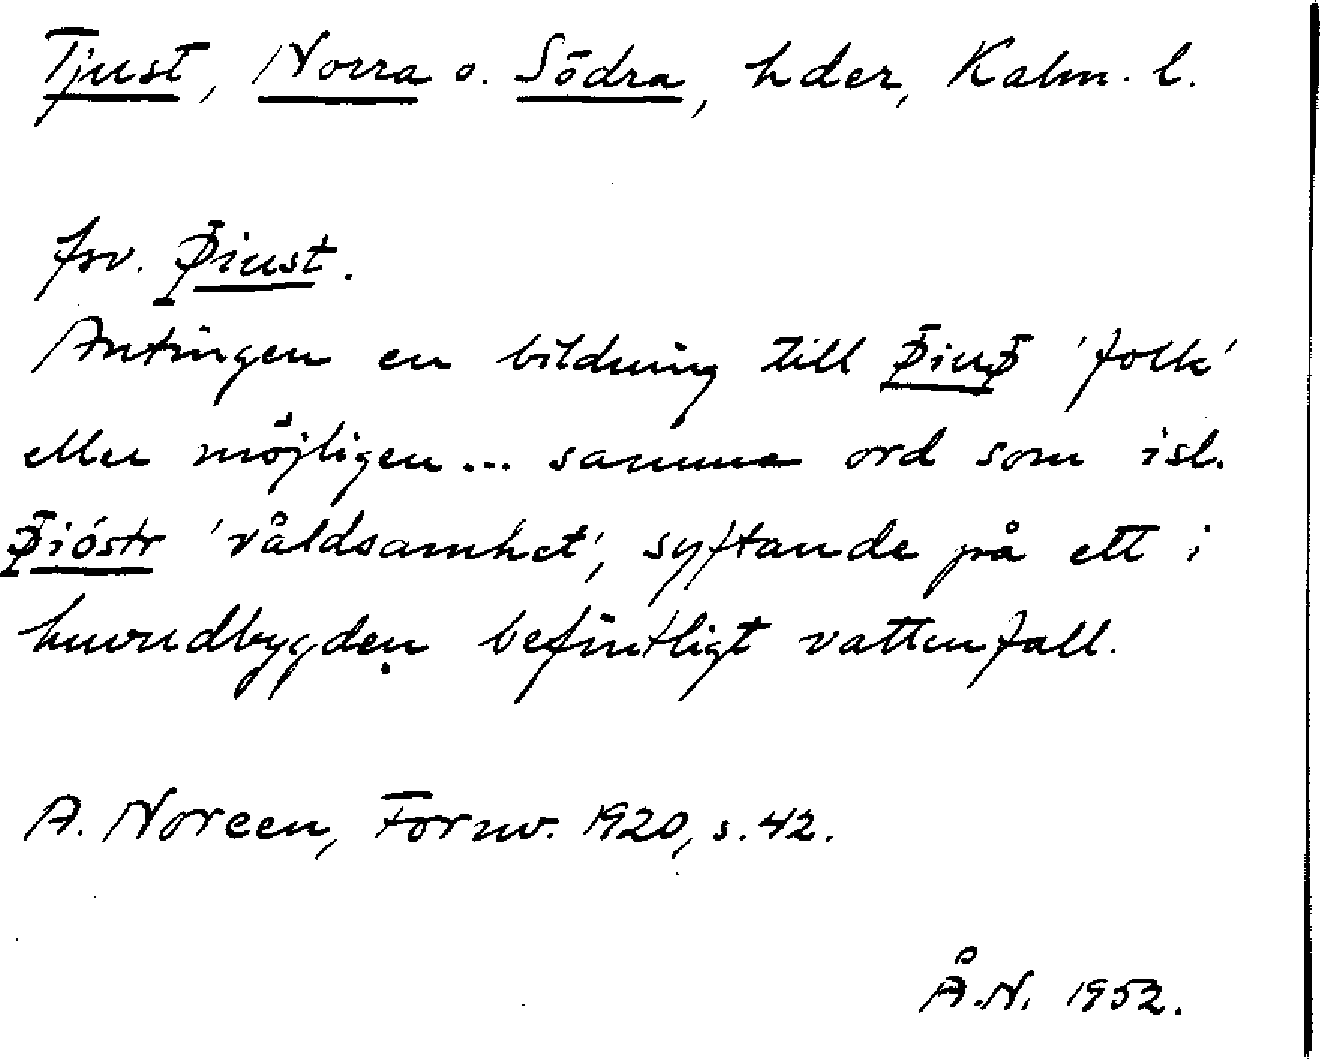 Tjust, Norra o. Södra, hder, Kalm. l.
fsv. Þiust.
Antingen en bildning till Þiuþ 'folk'
eller möjligen... samma ord som isl.
Þióstr 'våldsamhet', syftande på ett i
huvudbygden befintligt vattenfall.
A. Noreen, Fornv. 1920, s. 42.
Å.N. 1952.